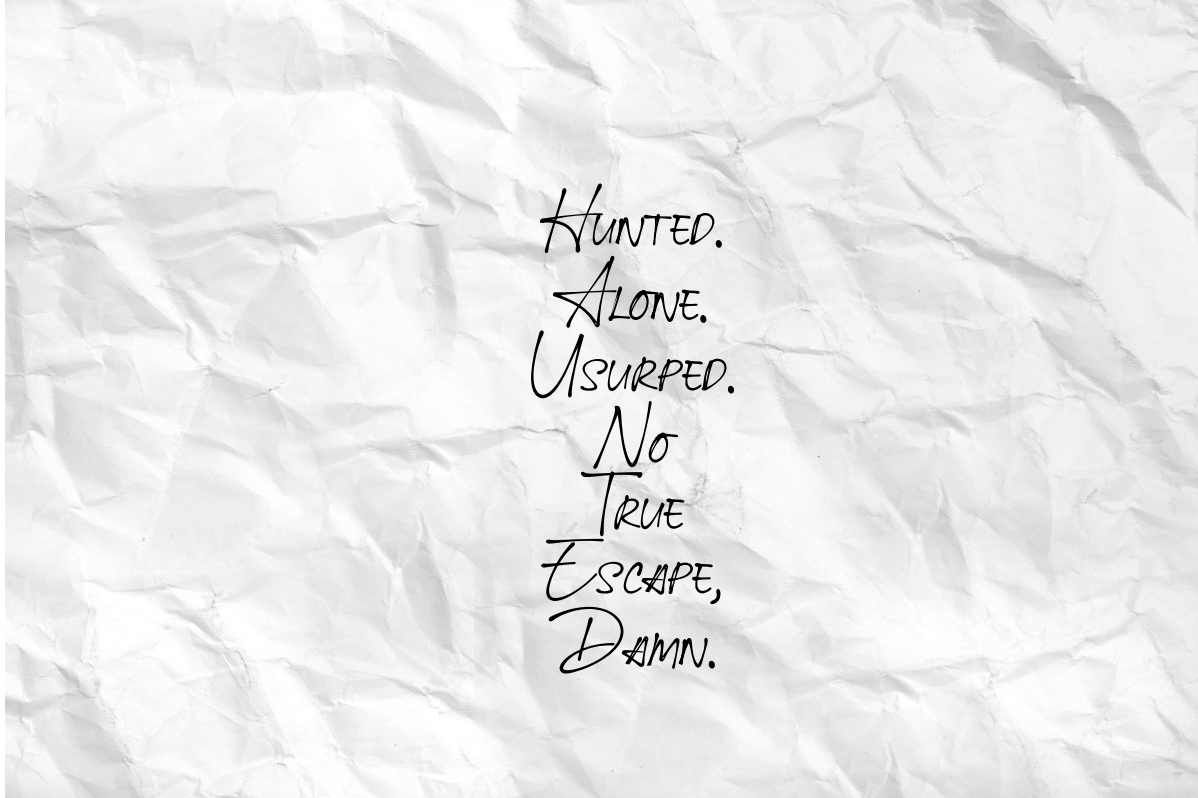 Hunted.
Alone.
Usurped.
No
True
Escape,
Damn.